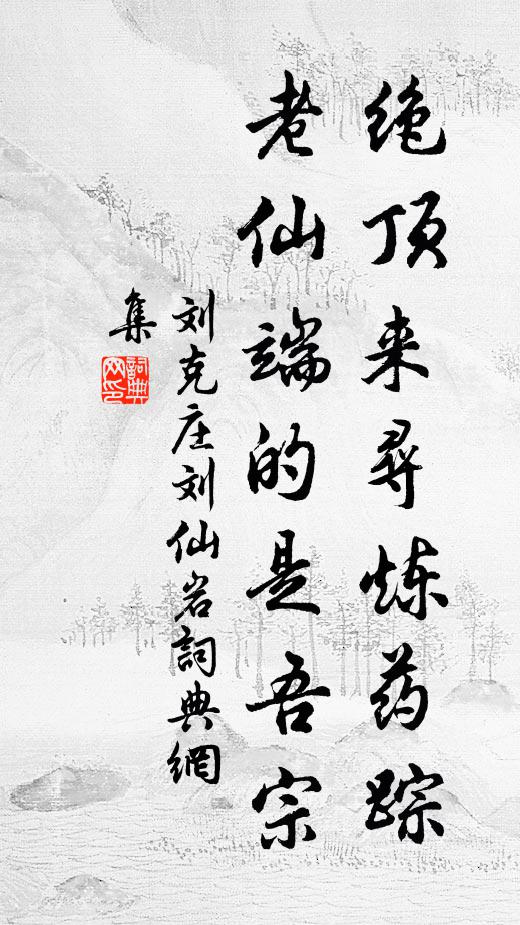 绝顶来寻炼药踪
老仙端的是吾宗
刘克庄刘仙岩詞典網
集
詞典网印